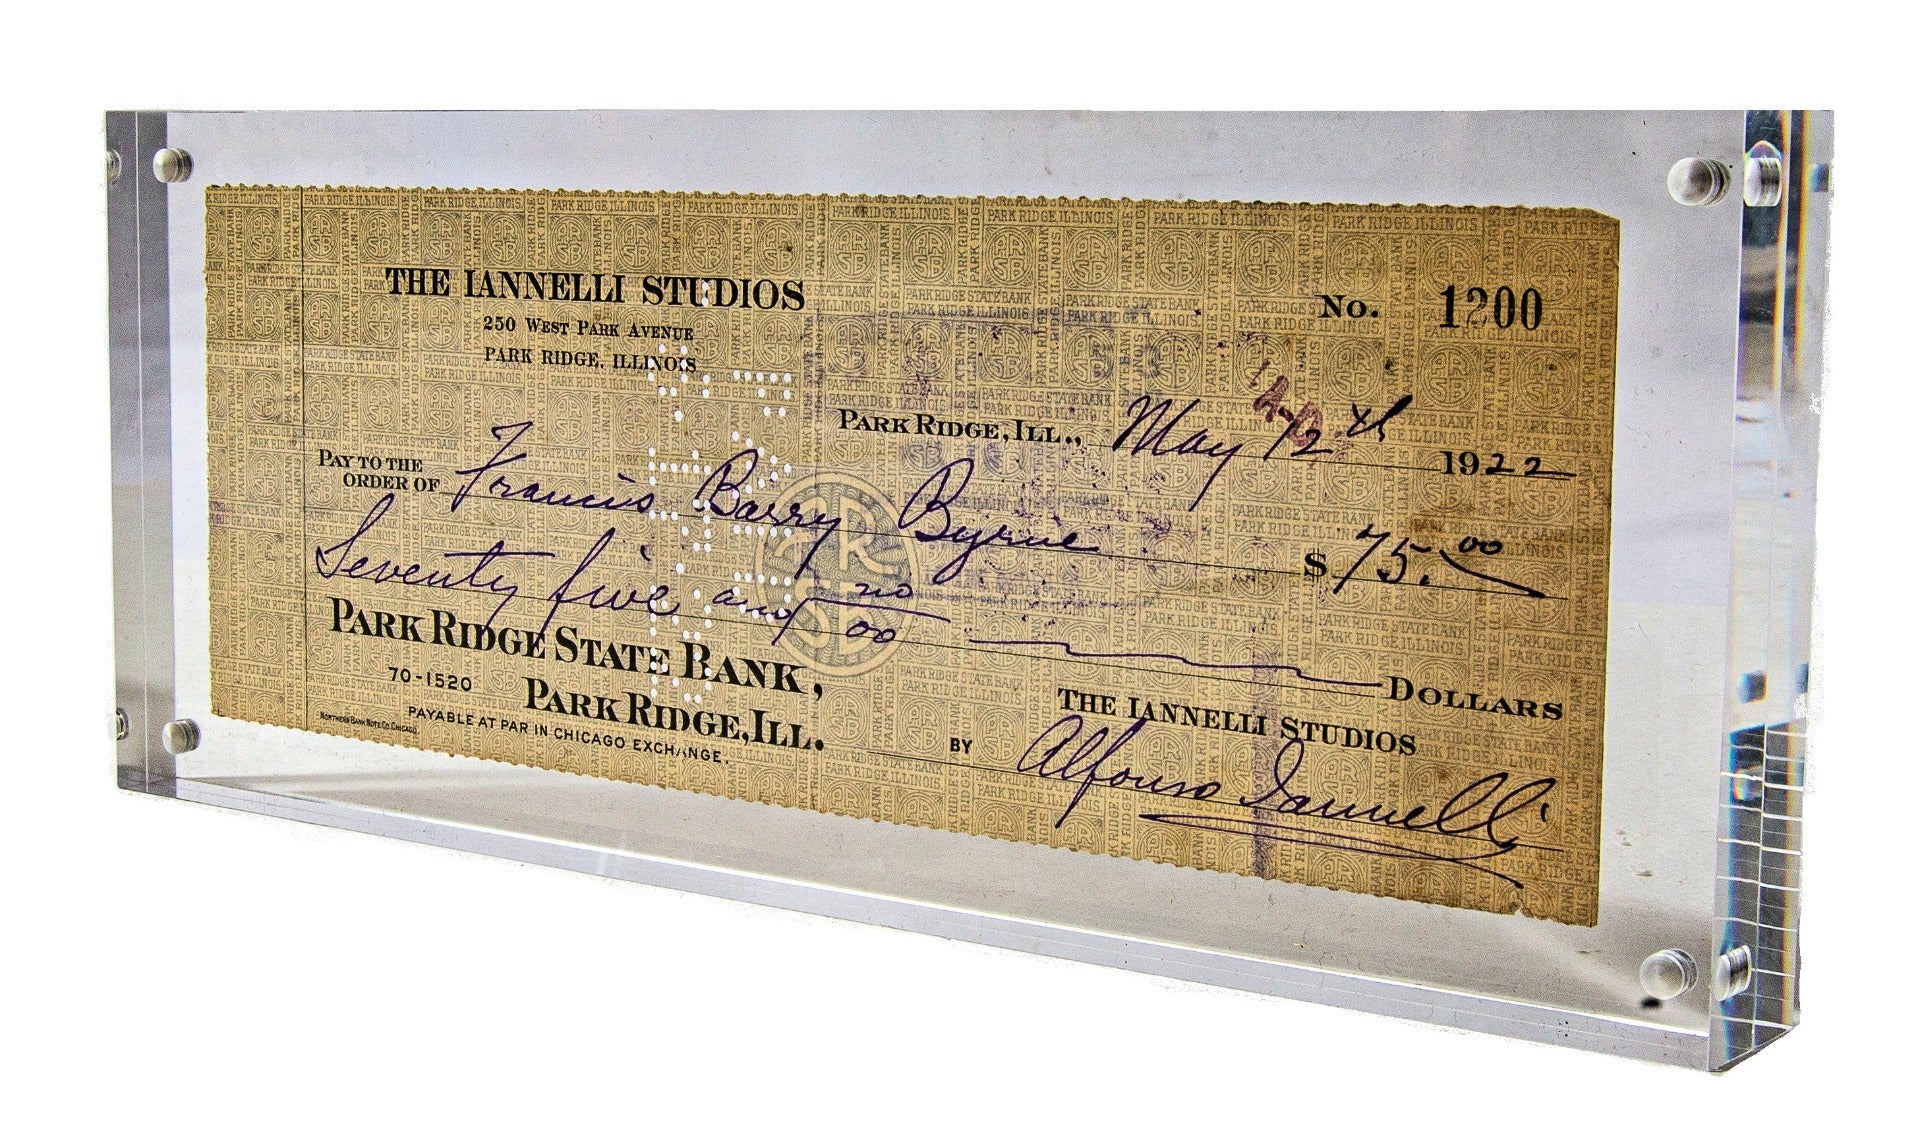 THE IANNELLI STUDIOS
250 WEST PARK AVENUE
PARK RIDGE, ILLINOIS
No. 1200
PARK RIDGE, ILL., May 12th 1922
PAY TO THE
ORDER OF Francis Barry Byrne $75.00
Seventy five and no/00 DOLLARS
PARK RIDGE STATE BANK,
70-1520 PARK RIDGE, ILL.
NORTHERN BANK NOTE CO. CHICAGO.
PAYABLE AT PAR IN CHICAGO EXCHANGE.
THE IANNELLI STUDIOS
BY Alfonso Iannelli
PRSB
PARK RIDGE STATE BANK
PARK RIDGE ILLINOIS